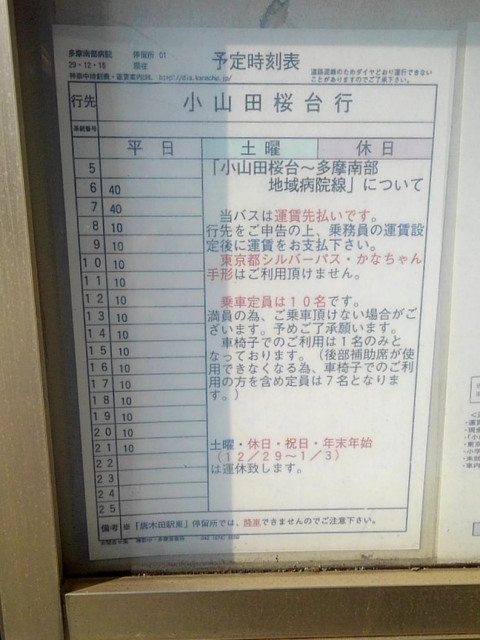 多摩南部病院 停留所 01
29・12・16 現在
予定時刻表
道路混雑のためダイヤどおり運行できない
ことがありますのでご了承下さい。
行先 小山田桜台行
系統番号
平日 土曜 休日
5
6 40
7 40
8 10
9 10
10 10
11 10
12 10
13 10
14 10
15 10
16 10
17 10
18 10
19 10
20 10
21 10
22
23
24
25
「小山田桜台～多摩南部
地域病院線」について
当バスは運賃先払いです。
行先をご申告の上、乗務員の運賃設
定後に運賃をお支払下さい。
東京都シルバーパス・かなちゃん
手形はご利用頂けません。
乗車定員は10名です。
満員の為、ご乗車頂けない場合がご
ざいます。予めご了承願います。
車椅子でのご利用は1名のみと
なっております。（後部補助席が使
用できなくなる為、車椅子でのご利
用の方を含め定員は7名となりま
す。）
土曜・休日・祝日・年末年始
（12/29～1/3）
は運休致します。
備考 車「図師大橋」